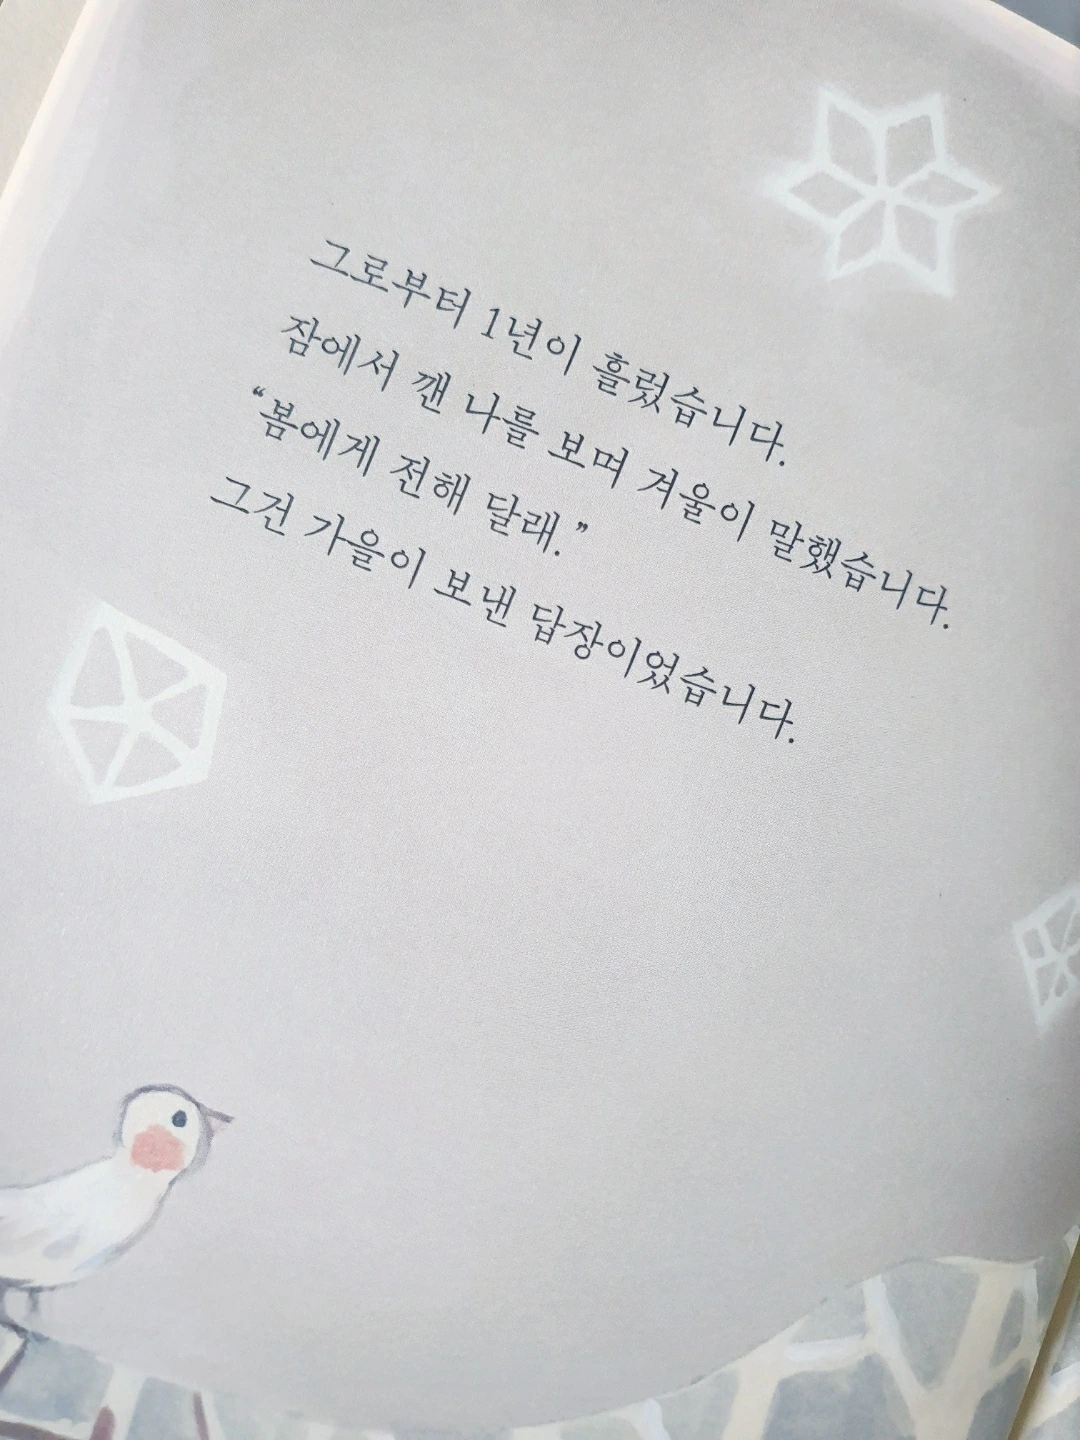 그로부터 1년이 흘렀습니다.
잠에서 깬 나를 보며 겨울이 말했습니다.
“봄에게 전해 달래.”
그건 가을이 보낸 답장이었습니다.